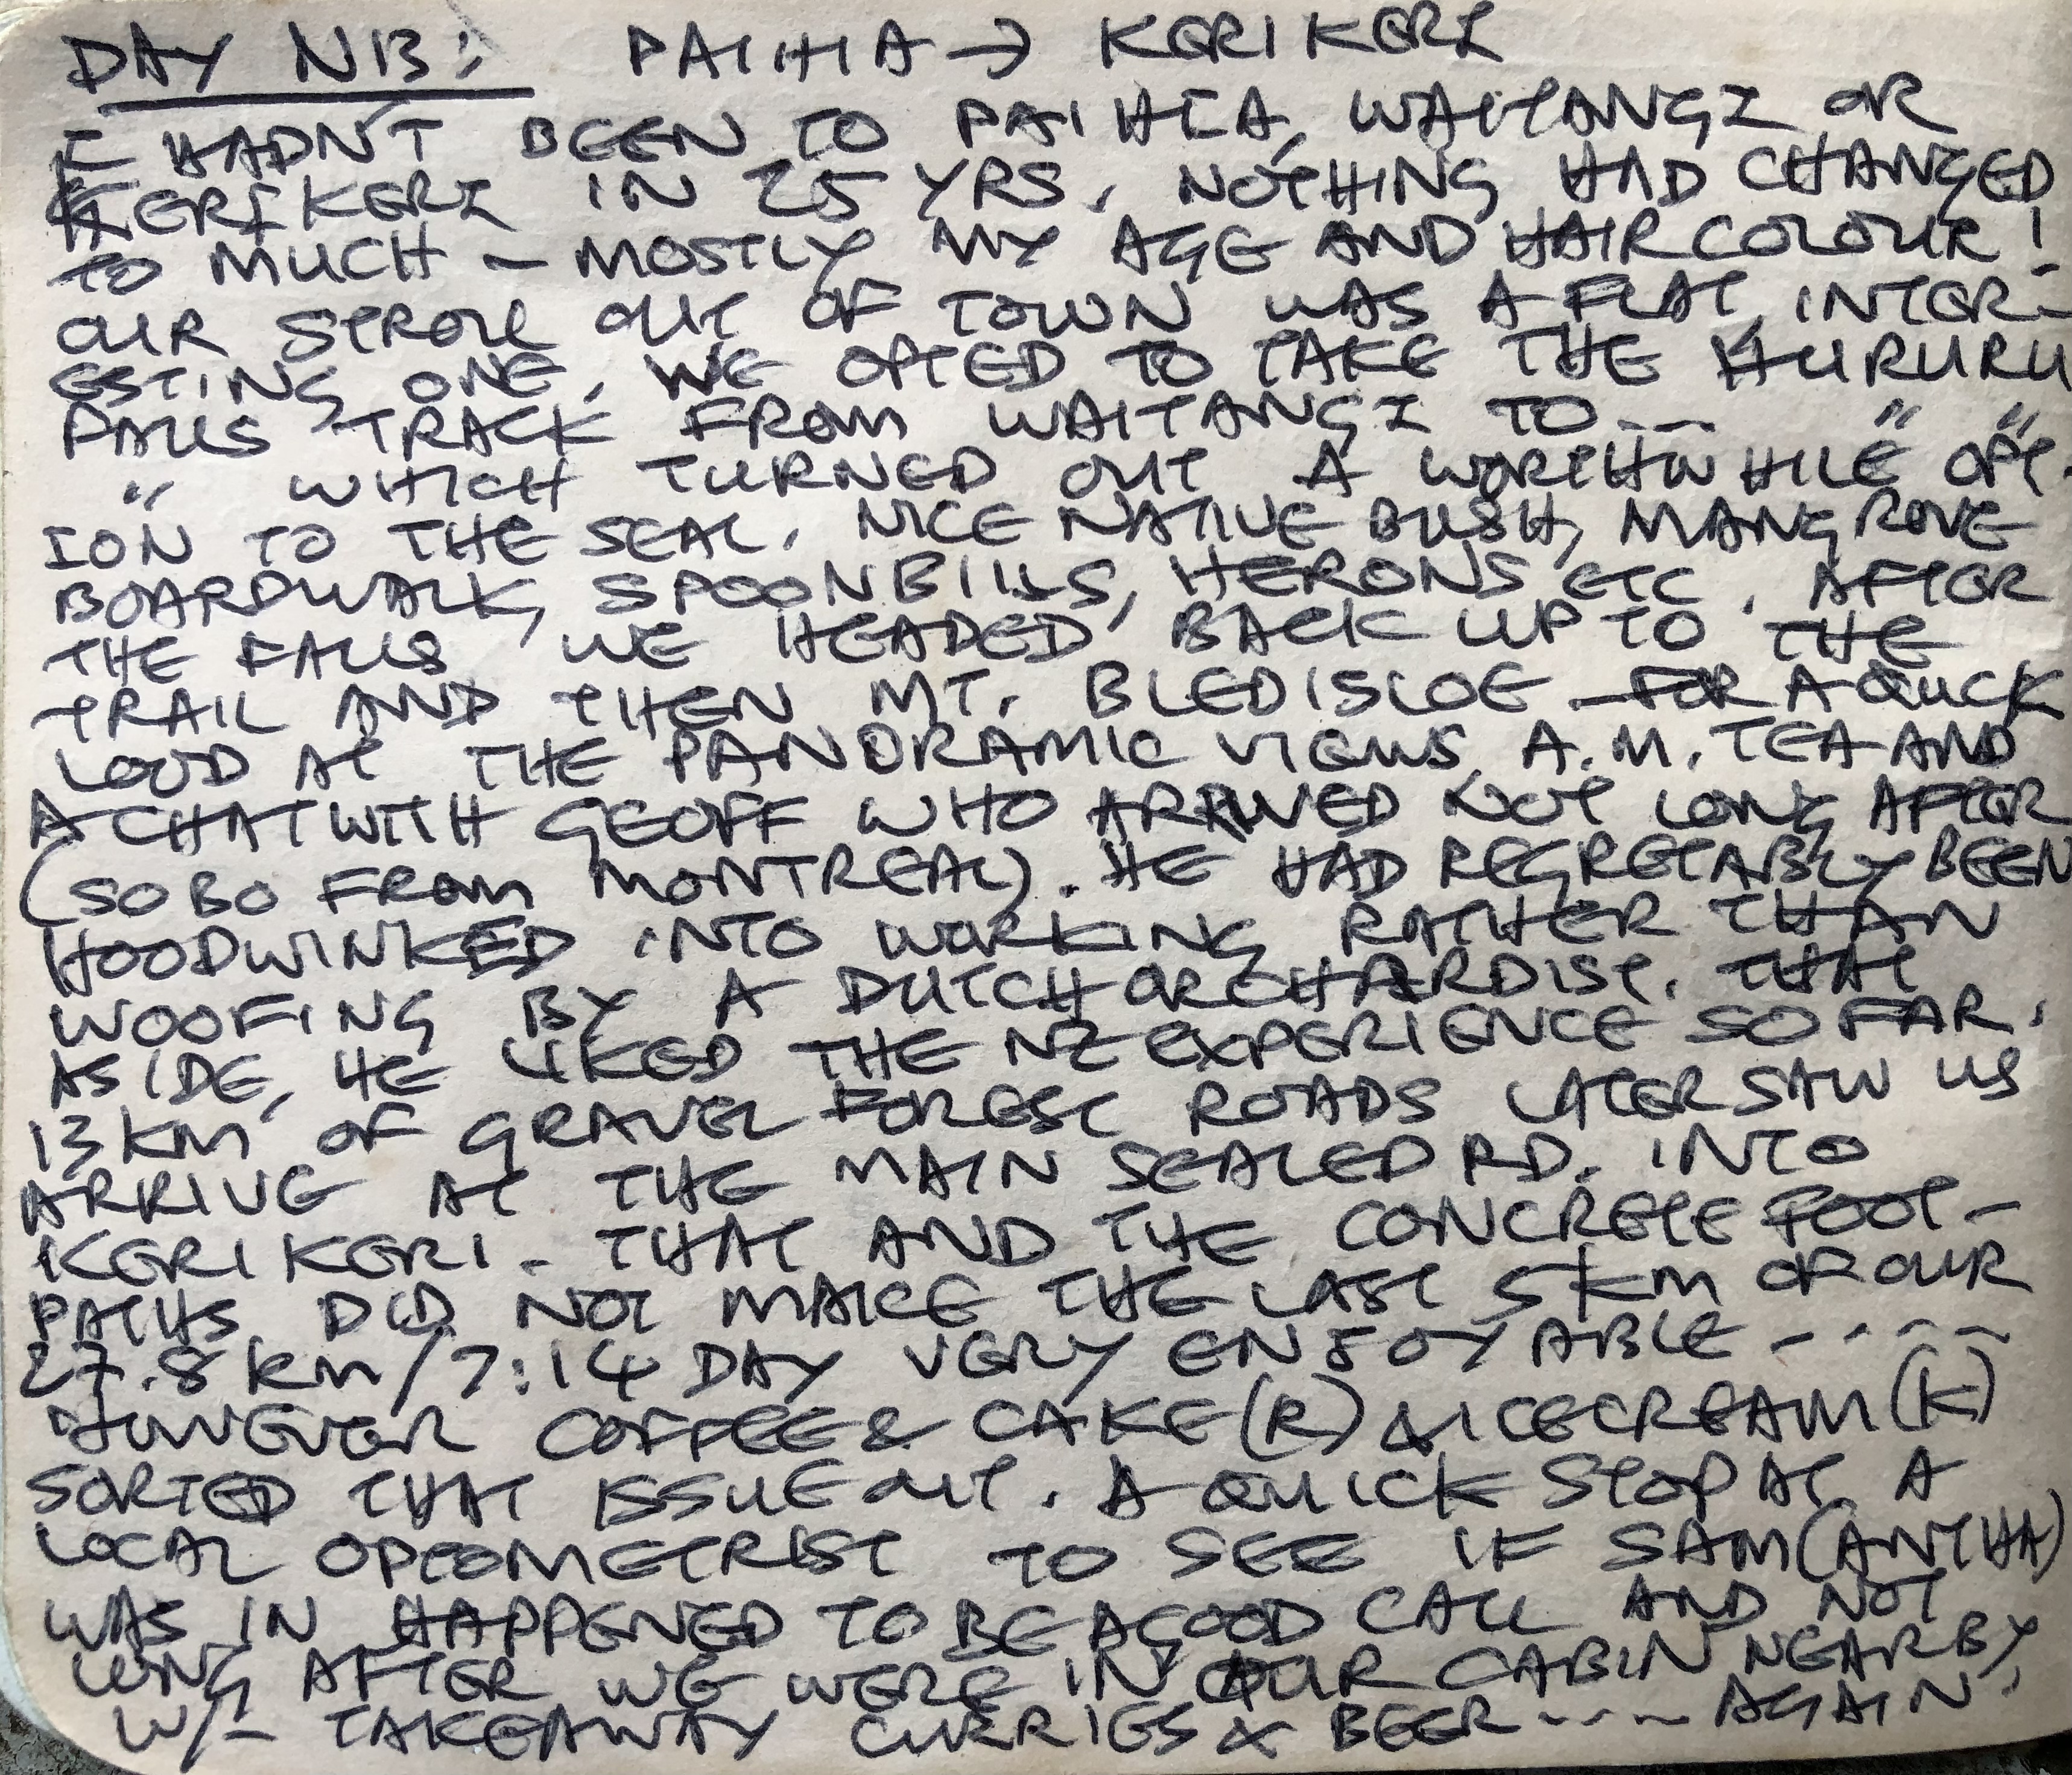 DAY N13: PAIHIA → KERIKERI
I HADN'T BEEN TO PAIHIA, WAITANGI OR
KERIKERI IN 25 YRS. NOTHING HAD CHANGED
TO MUCH - MOSTLY MY AGE AND HAIR COLOUR!
OUR STROLL OUT OF TOWN WAS A FLAT, INTER-
ESTING ONE. WE OPTED TO TAKE THE HURURU
FALLS TRACK FROM WAITANGI TO --- " "
" WHICH TURNED OUT A WORTHWHILE OPT-
ION TO THE SEAL. NICE NATIVE BUSH, MANGROVE
BOARDWALK, SPOONBILLS, HERONS ETC. AFTER
THE FALLS WE HEADED BACK UP TO THE
TRAIL AND THEN MT. BLEDISLOE - FOR A QUICK
LOOD AT THE PANORAMIC VIEWS, A.M. TEA AND
A CHAT WITH GEOFF WHO ARRIVED NOT LONG AFTER
(SOBO FROM MONTREAL). HE HAD REGRETABLY BEEN
HOODWINKED INTO WORKING RATHER THAN
WOOFING BY A DUTCH ORCHARDIST. THAT
ASIDE, HE LIKED THE NZ EXPERIENCE SO FAR.
13 KM OF GRAVEL FOREST ROADS LATER SAW US
ARRIVE AT THE MAIN SEALED RD. INTO
KERIKERI - THAT AND THE CONCRETE FOOT-
PATHS DID NOT MAKE THE LAST 5 KM OF OUR
27.8 KM/7:14 DAY VERY ENJOYABLE -----
HOWEVER COFFEE & CAKE (R) & ICECREAM (K)
SORTED THAT ISSUE OUT. A QUICK STOP AT A
LOCAL OPTOMETRIST TO SEE IF SAM(ANTHA)
WAS IN HAPPENED TO BE A GOOD CALL AND NOT
LONG AFTER WE WERE IN OUR CABIN NEARBY
W/- TAKEAWAY CURRIES & BEER ---- AGAIN!